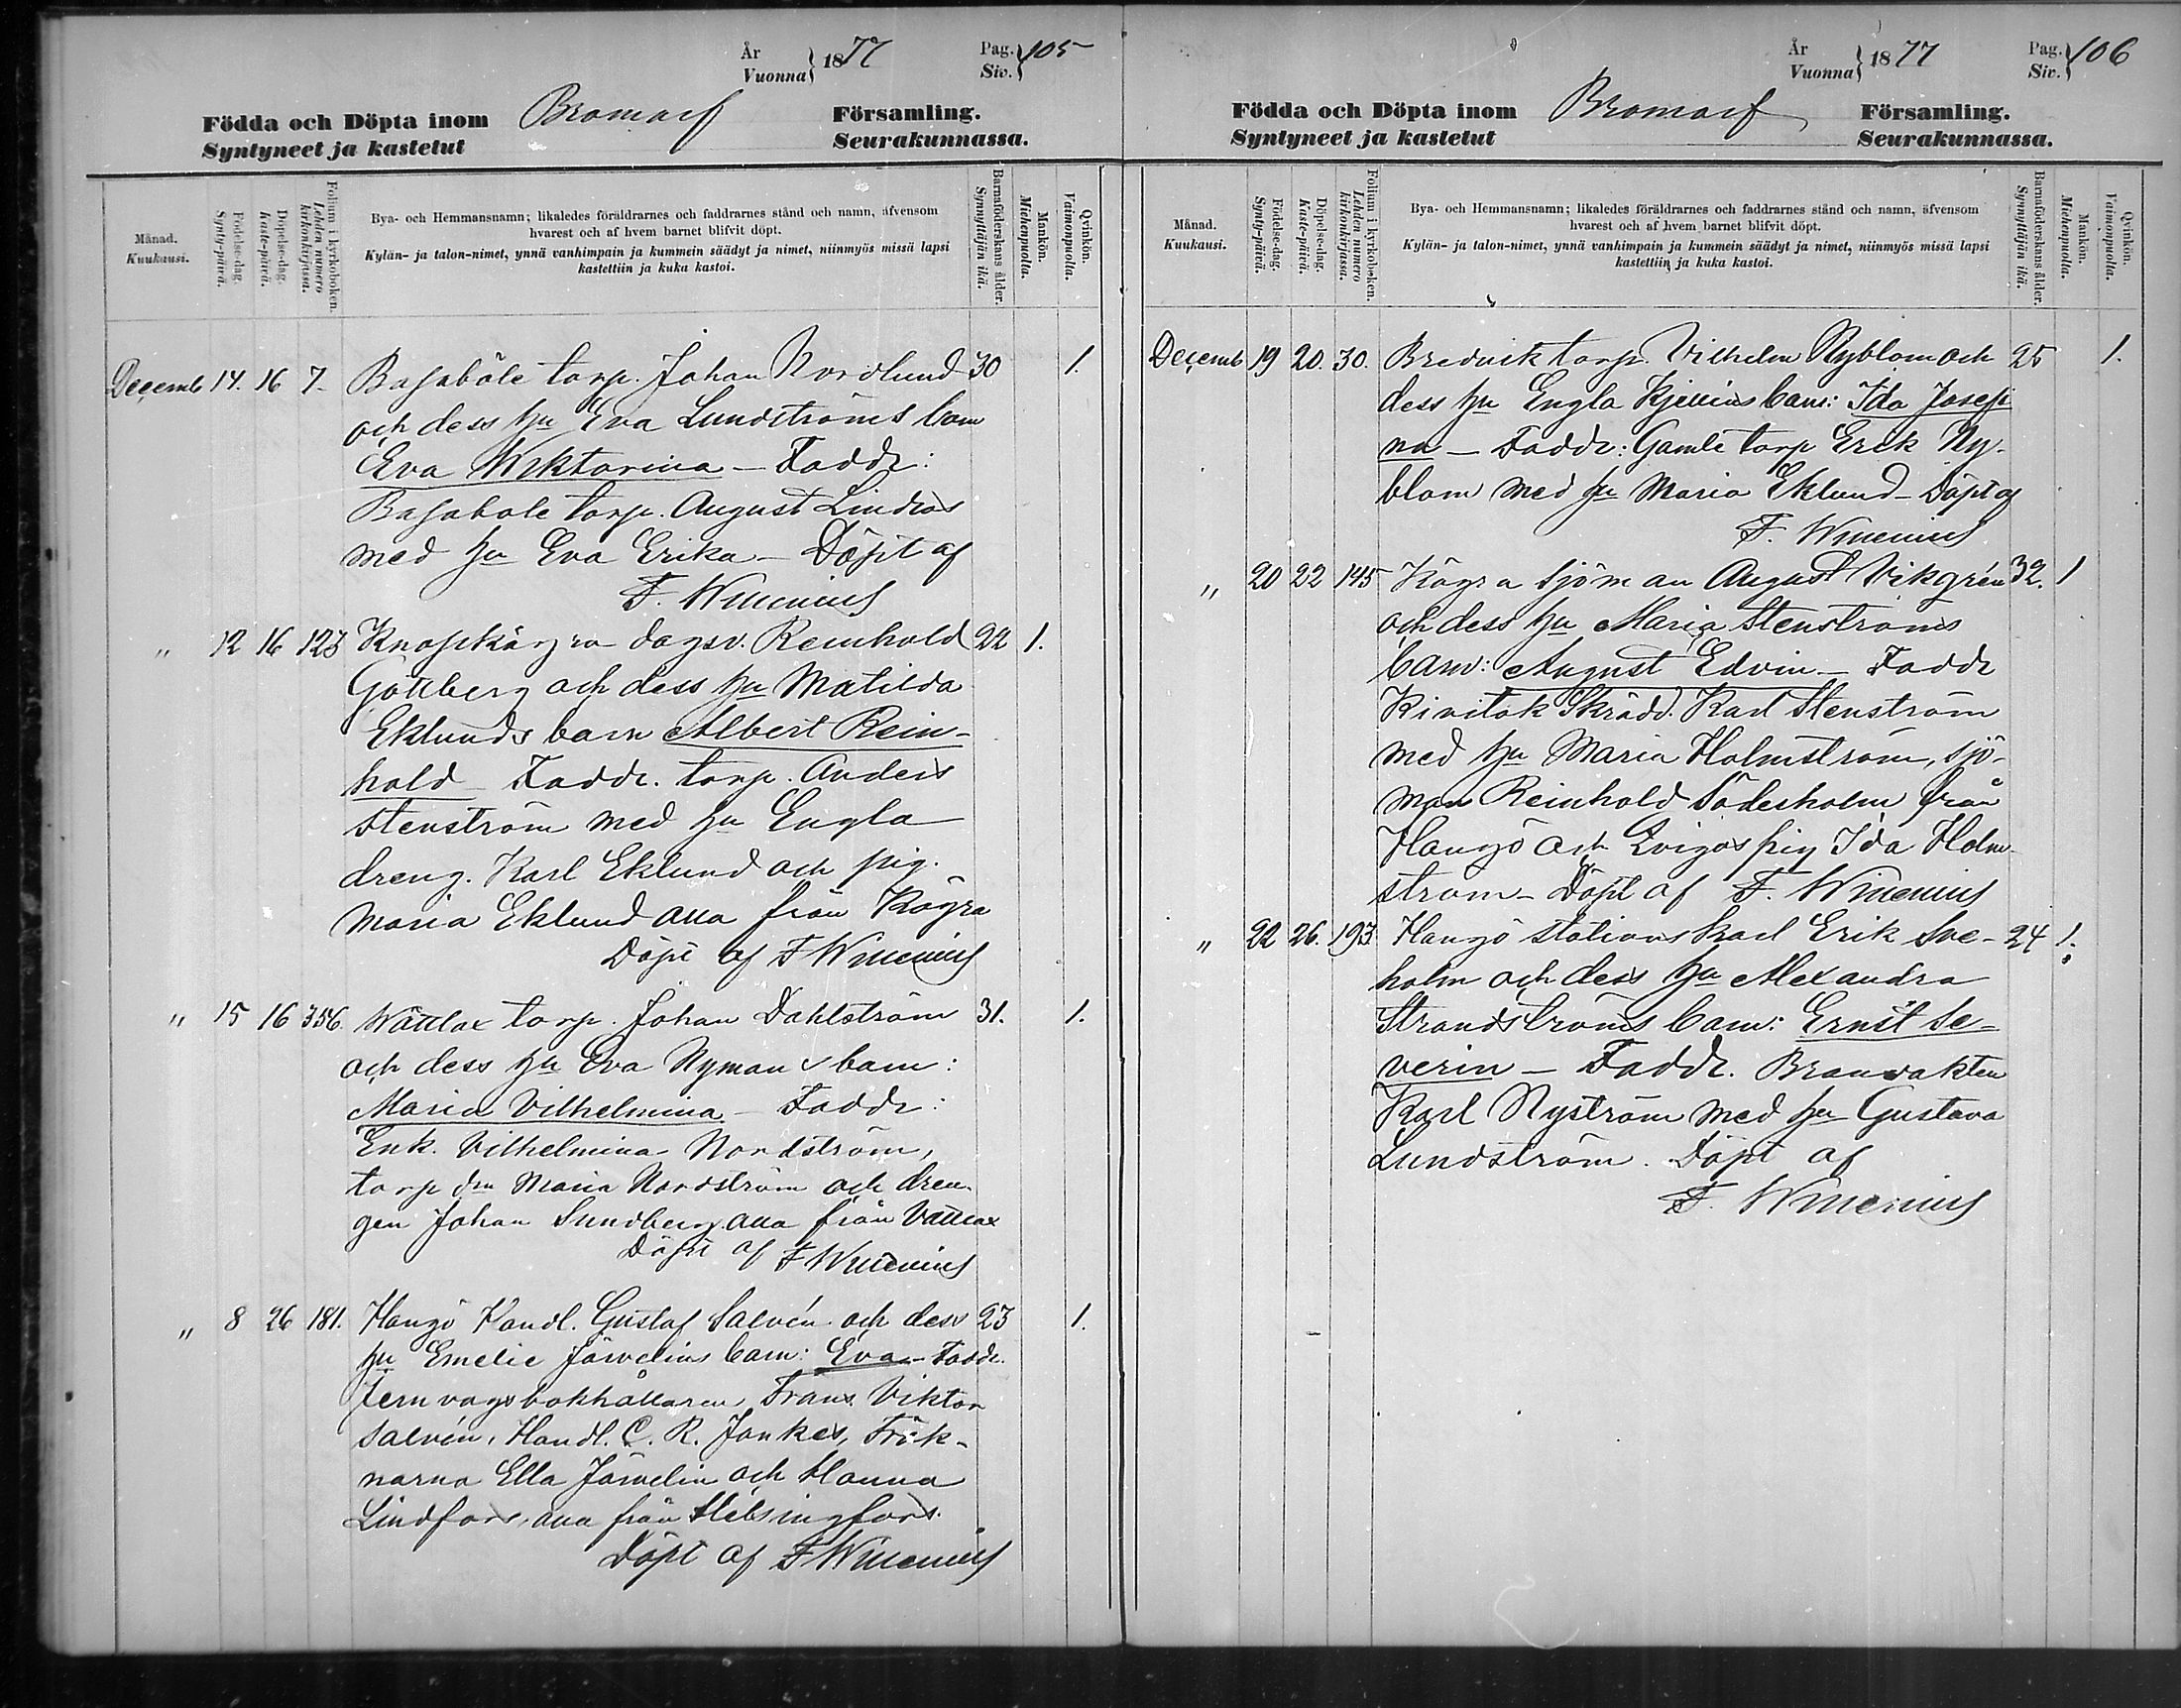 År
Vuonna } 1877
Pag.
Siv. } 105
Födda och Döpta inom Bromarf Församling.
Syntyneet ja kastetut Seurakunnassa.
Månad.
Kuukausi.
Födelse-dag.
Synty-päivä.
Döpelse-dag.
Kaste-päivä.
Folium i kyrkoboken.
Lehden numero
kirkonkirjassa.
Bya- och Hemmansnamn; likaledes föräldrarnes och faddrarnes stånd och namn, äfvensom
hvarest och af hvem barnet blifvit döpt.
Kylän- ja talon-nimet, ynnä vanhimpain ja kummein säädyt ja nimet, niinmyös missä lapsi
kastettiin ja kuka kastoi.
Barnaföderskans ålder.
Synnyttäjän ikä.
Mankön.
Miehenpuolia.
Qvinkön.
Vaimonpuolia.
Decemb 14. 16 7. Basaböle torp. Johan Nordlund 30 1.
och dess hu Eva Lundströms barn
Eva Wiktorina — Faddr:
Basabole torp. August Lindros
med hu Eva Erika — Döpt af
F. Winenius
" 12 16 123 Knopkärgra dagsv. Reinhold 22 1.
Göttberg och dess hu Matilda
Eklunds barn Albert Rein-
hold — Faddr. torp. Anders
Stenström med hu Engla
dreng. Karl Eklund och pig.
Maria Eklund alla från Kögra
Döpt af F Winenius
" 15 16 356. Wättlax torp. Johan Dahlström 31. 1.
och dess hu Eva Nymans barn:
Maria Vilhelmina — Faddr:
Enk. Vilhelmina Nordström,
torp dn Maria Nordström och dren-
gen Johan Sundberg alla från Vättlax
Döpt af F Winenius
" 8 26 181. Hangö Handl. Gustaf Salvén och dess 23 1.
hu Emelie Järvelins barn: Eva — Faddr.
Jernvägsbokhållaren Frans Viktor
Salvén, Handl. C. R. Jankes, Frök-
narna Ella Järvelin och Hanna
Lindfors, alla från Helsingfors.
Döpt af F Winenius
År
Vuonna } 1877
Pag.
Siv. } 106
Födda och Döpta inom Bromarf Församling.
Syntyneet ja kastetut Seurakunnassa.
Månad.
Kuukausi.
Födelse-dag.
Synty-päivä.
Döpelse-dag.
Kaste-päivä.
Folium i kyrkoboken.
Lehden numero
kirkonkirjassa.
Bya- och Hemmansnamn; likaledes föräldrarnes och faddrarnes stånd och namn, äfvensom
hvarest och af hvem barnet blifvit döpt.
Kylän- ja talon-nimet, ynnä vanhimpain ja kummein säädyt ja nimet, niinmyös missä lapsi
kastettiin ja kuka kastoi.
Barnaföderskans ålder.
Synnyttäjän ikä.
Mankön.
Miehenpuolia.
Qvinkön.
Vaimonpuolia.
Decemb 19 20. 30. Bredvik torp. Vilhelm Nyblom och 25 1.
dess hu Engla Kjellins barn: Ida Josefi
na — Faddr: Gamle torp Erik Ny-
blom med hu Maria Eklund — Döpt af
F. Winenius
" 20 22 145 Kögra Sjöman August Vikgrén 32. 1
och dess hu Maria Stenströms
barn: August Edvin — Faddr
Kivitok Skrädd. Karl Stenström
med hu Maria Holmström, sjö-
man Reinhold Söderholm från
Hangö och pig Ida Holm-
ström — Döpt af F. Winenius
" 22 26. 193. Hangö stationskarl Erik Sve- 24 1.
holm och dess hu Alexandra
Strandströms barn: Ernst Se-
verin — Faddr. Branvakten
Karl Nyström med hu Gustava
Lundström. Döpt af
F. Winenius